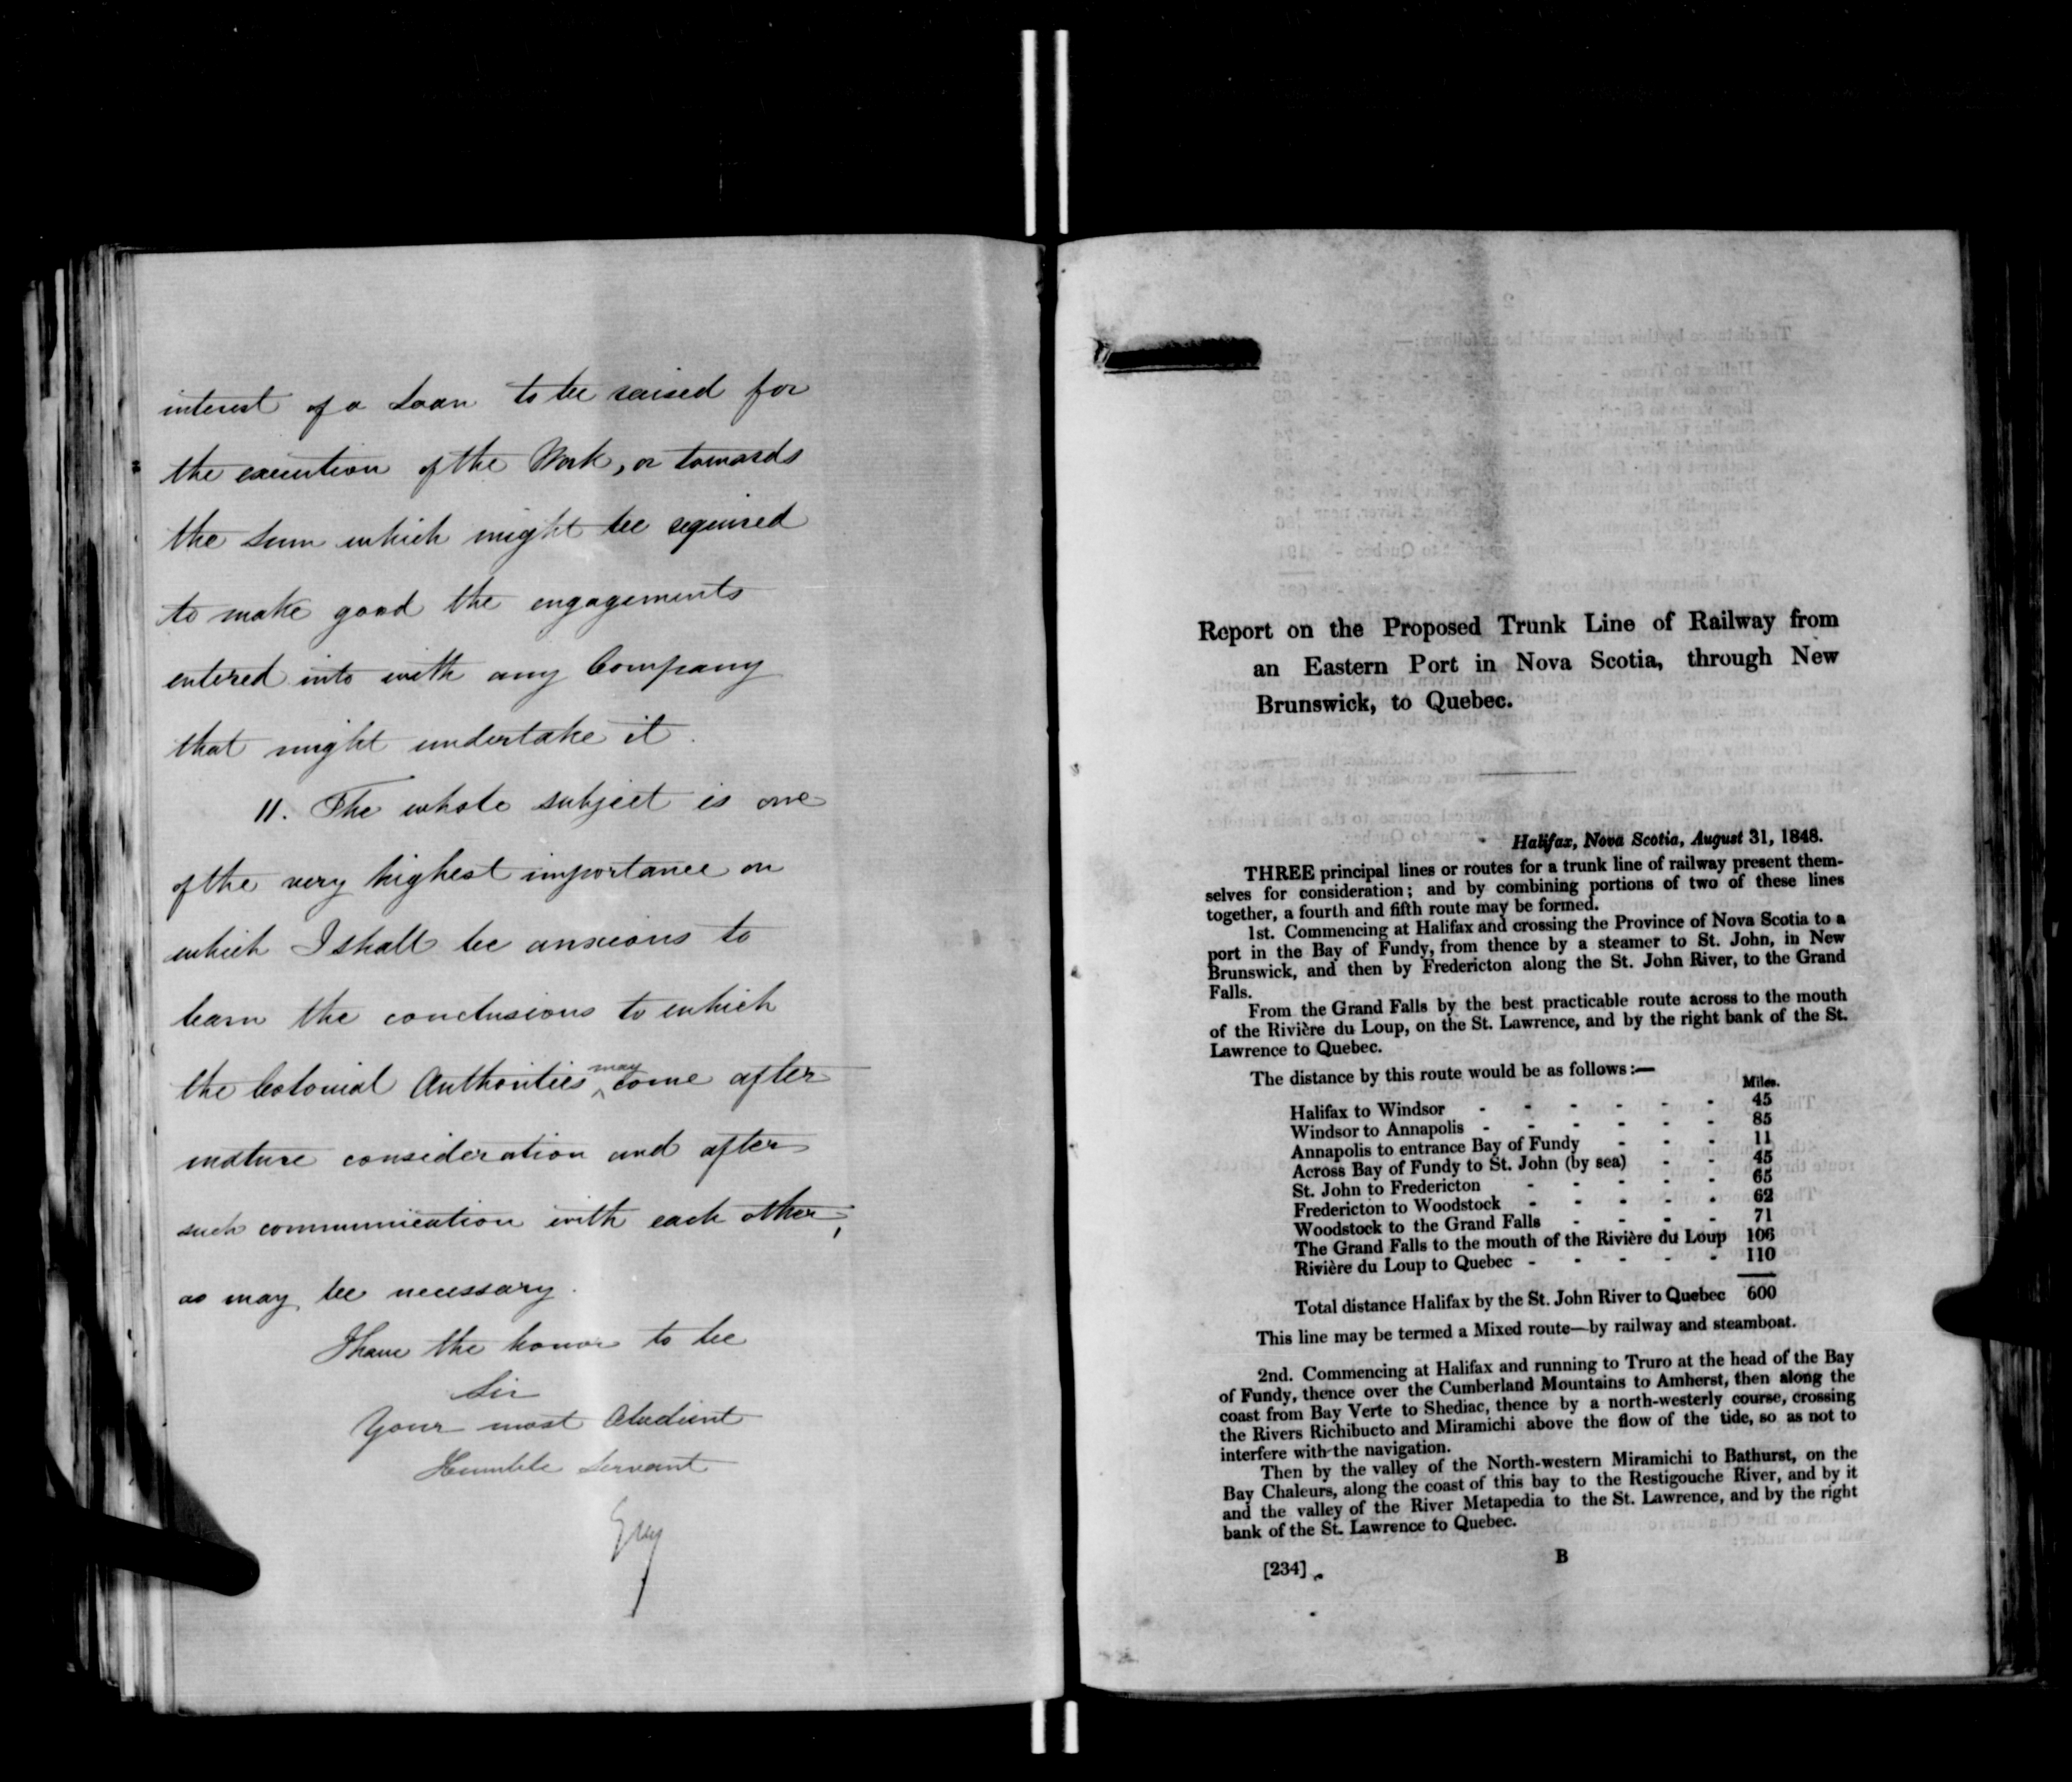 interest of a Loan to be raised for
the execution of the Work, or towards
the sum which might be required
to make good the engagements
entered into with any Company
that might undertake it.
11. The whole subject is one
of the very highest importance on
which I shall be anxious to
learn the conclusions to which
may
the Colonial Authorities ‸ come after
mature consideration and after
such communication with each other,
as may be necessary.
I have the honor to be
Sir
Your most Obedient
Humble Servant
Grey
Report on the Proposed Trunk Line of Railway from
an Eastern Port in Nova Scotia, through New
Brunswick, to Quebec.
Halifax, Nova Scotia, August 31, 1848.
THREE principal lines or routes for a trunk line of railway present them-
selves for consideration; and by combining portions of two of these lines
together, a fourth and fifth route may be formed.
1st. Commencing at Halifax and crossing the Province of Nova Scotia to a
port in the Bay of Fundy, from thence by a steamer to St. John, in New
Brunswick, and then by Fredericton along the St. John River, to the Grand
Falls.
From the Grand Falls by the best practicable route across to the mouth
of the Rivière du Loup, on the St. Lawrence, and by the right bank of the St.
Lawrence to Quebec.
The distance by this route would be as follows:—
Miles.
Halifax to Windsor - - - - - - 45
Windsor to Annapolis - - - - - - 85
Annapolis to entrance Bay of Fundy - - - 11
Across Bay of Fundy to St. John (by sea) - - 45
St. John to Fredericton - - - - - 65
Fredericton to Woodstock - - - - - 62
Woodstock to the Grand Falls - - - - 71
The Grand Falls to the mouth of the Rivière du Loup 106
Rivière du Loup to Quebec - - - - - 110
Total distance Halifax by the St. John River to Quebec 600
This line may be termed a Mixed route—by railway and steamboat.
2nd. Commencing at Halifax and running to Truro at the head of the Bay
of Fundy, thence over the Cumberland Mountains to Amherst, then along the
coast from Bay Verte to Shediac, thence by a north-westerly course, crossing
the Rivers Richibucto and Miramichi above the flow of the tide, so as not to
interfere with the navigation.
Then by the valley of the North-western Miramichi to Bathurst, on the
Bay Chaleurs, along the coast of this bay to the Restigouche River, and by it
and the valley of the River Metapedia to the St. Lawrence, and by the right
bank of the St. Lawrence to Quebec.
[234] B